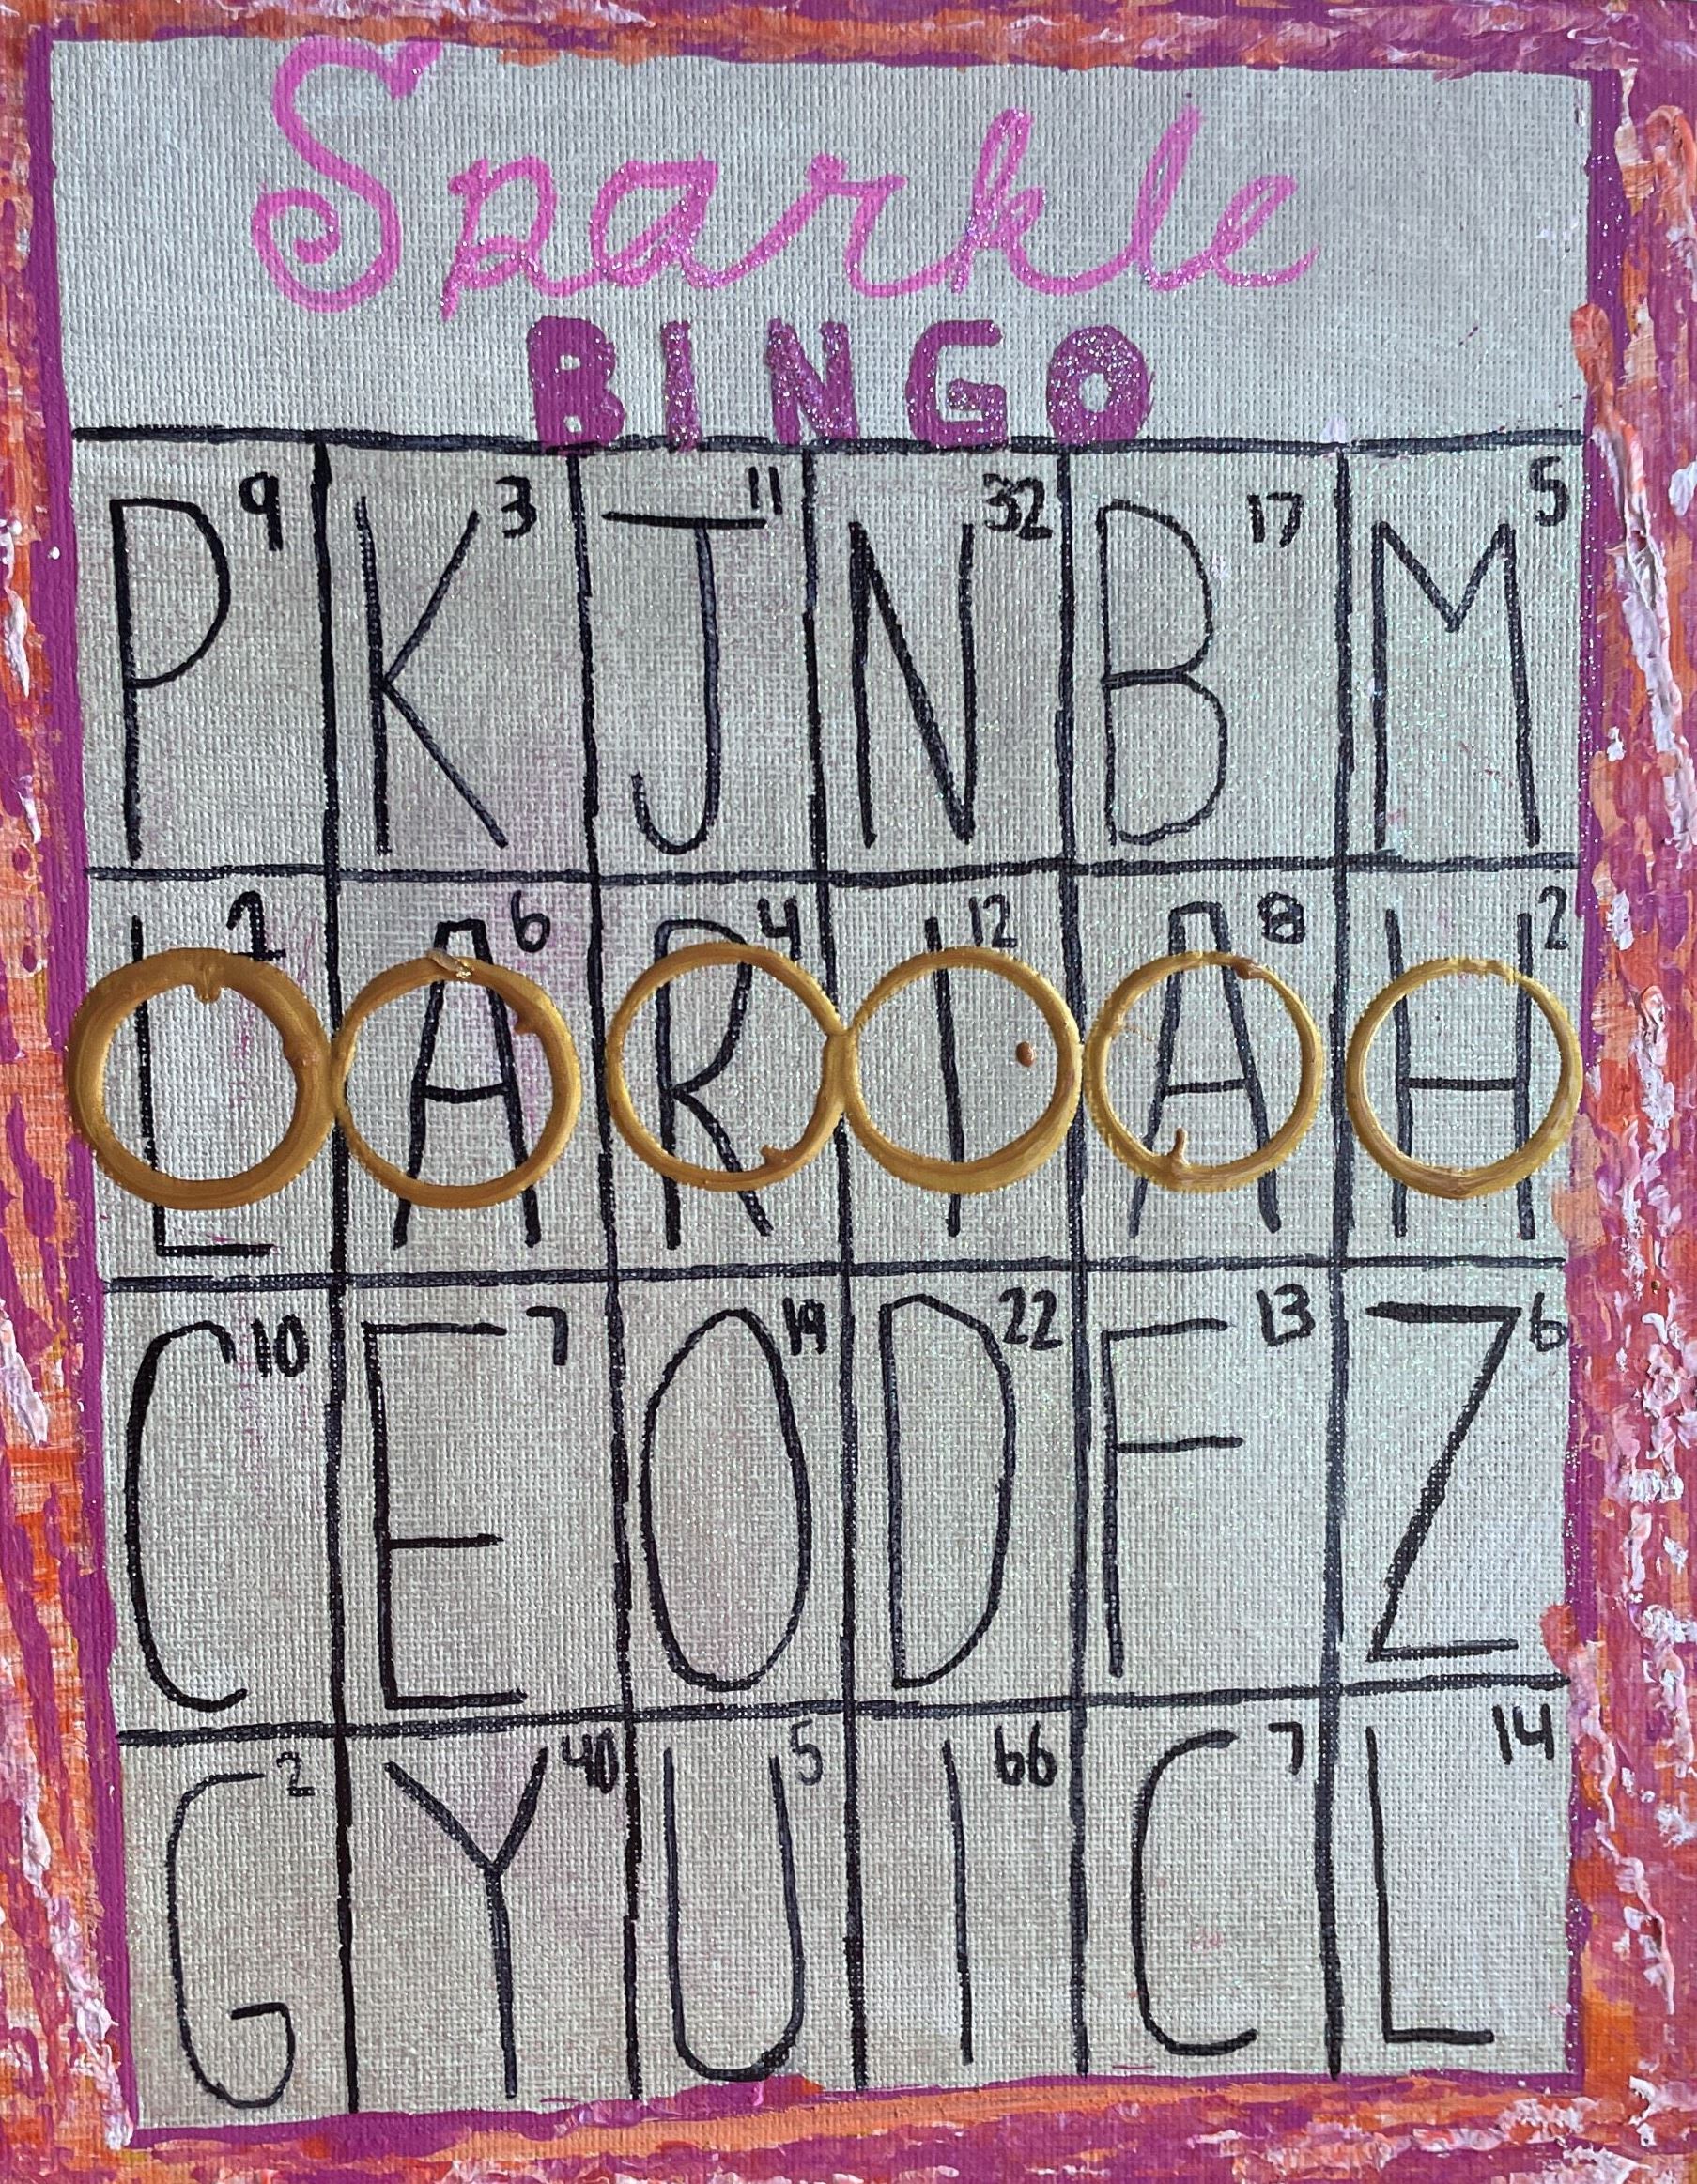 Sparkle
BINGO
P 9 K 3 J 11 N 32 B 17 M 5
L 1 A 6 R 4 I 12 A 8 H 2
C 10 E 7 O 19 D 22 F 13 Z 6
G 2 Y 40 U 5 I 66 C 7 L 14